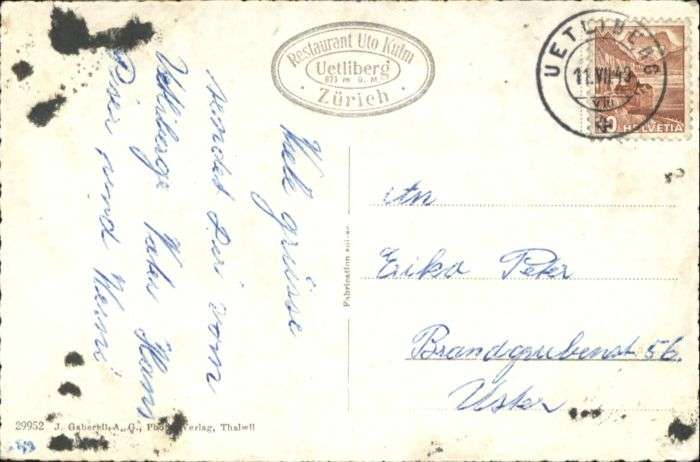 Restaurant Uto Kulm
Uetliberg
873 m ü. M.
Zürich
UETLIBERG
11.VII.49
VIII
HELVETIA
Viele grüsse
sendet Dir vom
Uetliberge Vater Hans
und Werni
Fabrication suisse
An
Erika Peter
Brandgrubenst 56.
Uster
29952 J. Gaberell A. G., Photo-Verlag, Thalwil